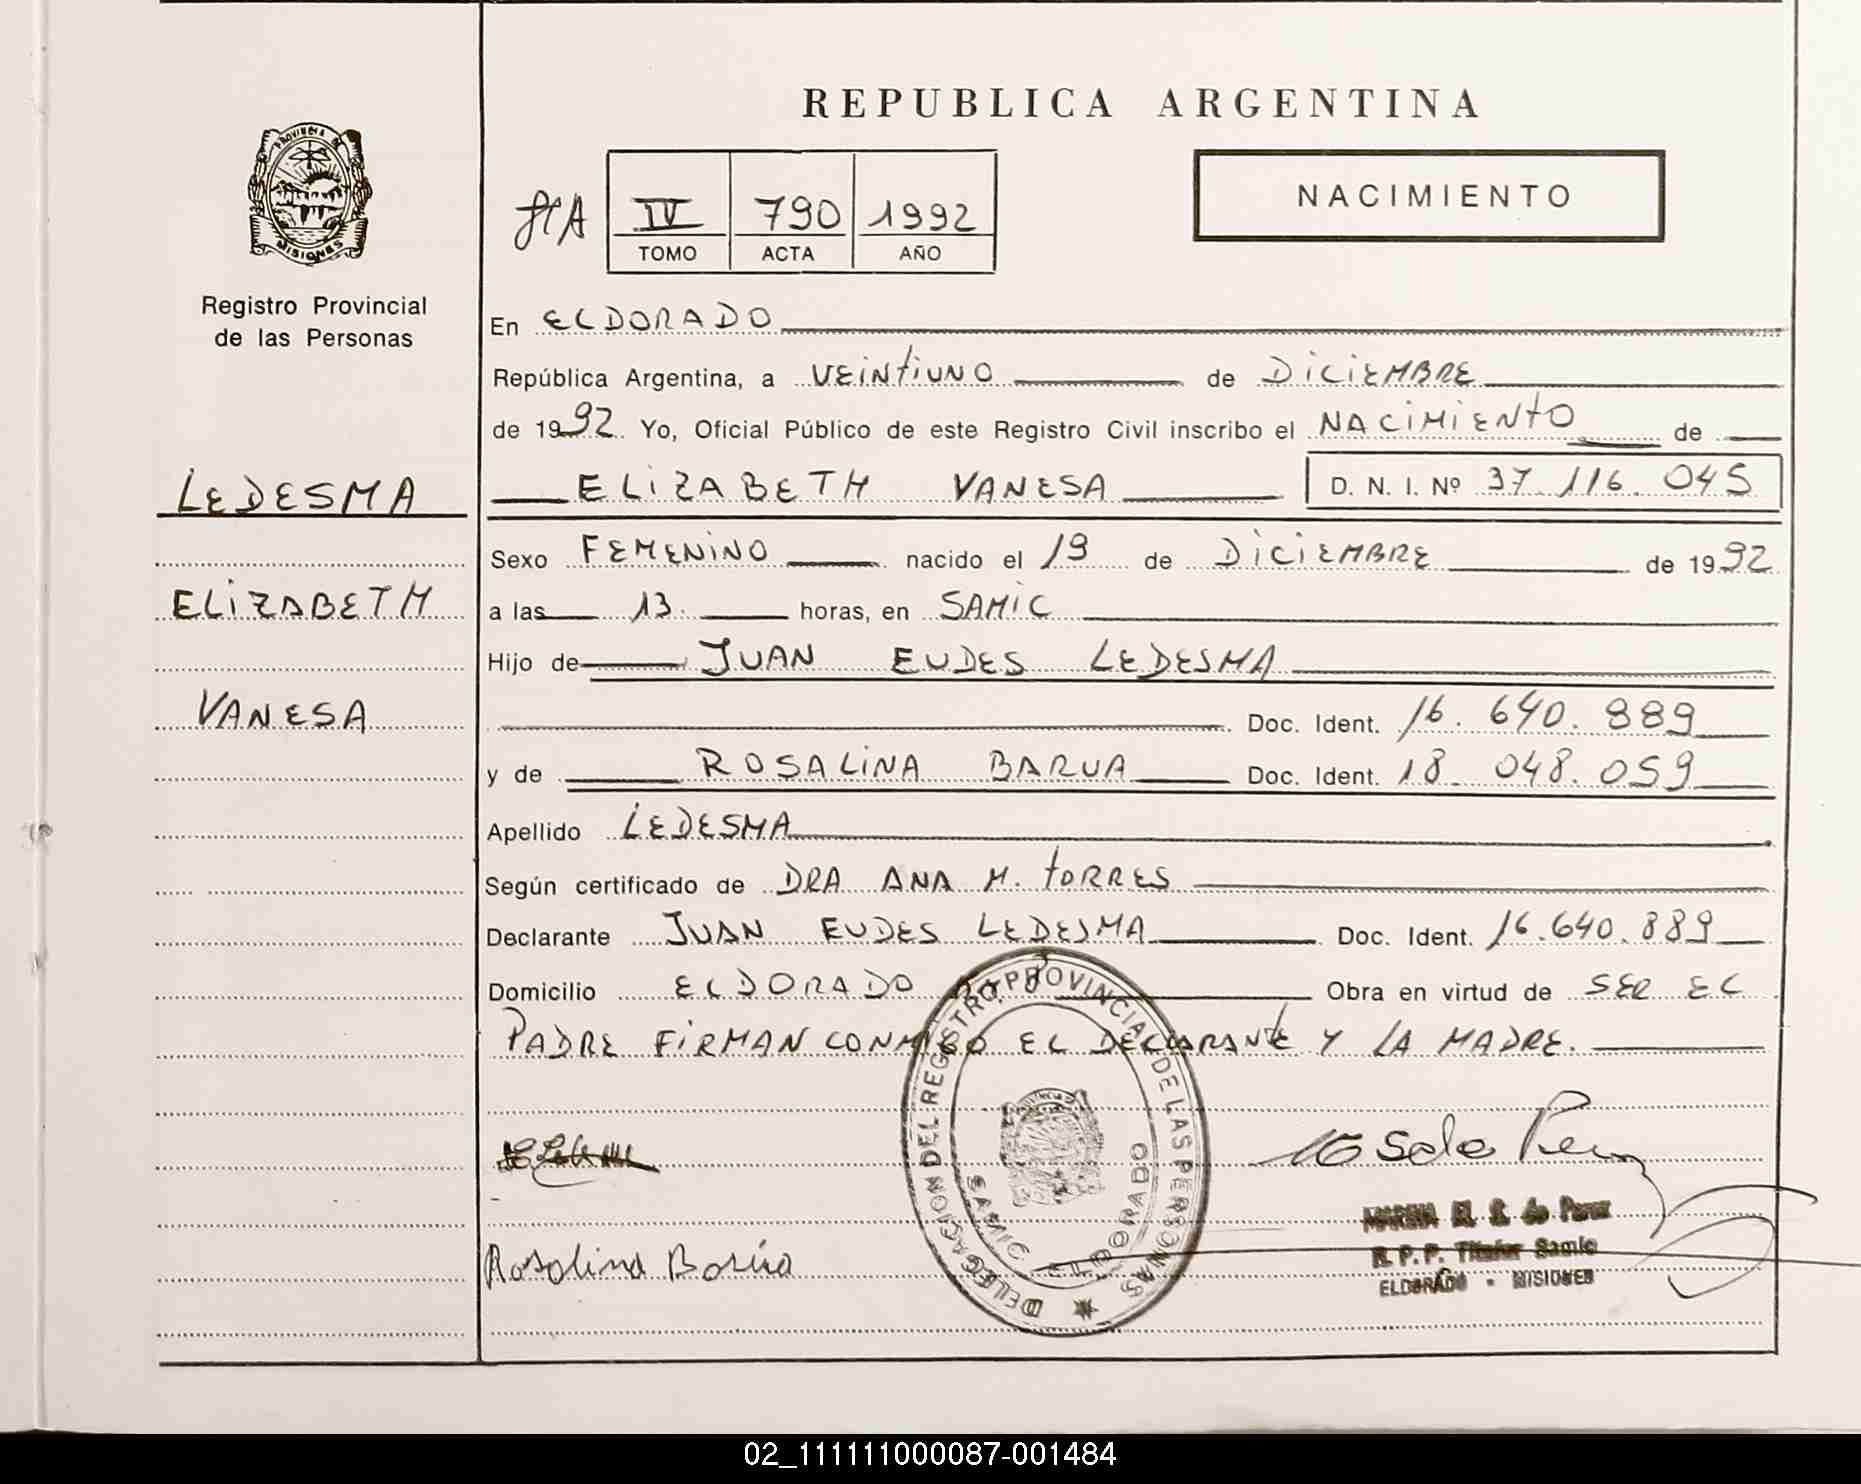 REPUBLICA ARGENTINA
PROVINCIA DE
MISIONES
Registro Provincial
de las Personas
IV 790 1992
TOMO ACTA AÑO
NACIMIENTO
LEDESMA
ELIZABETH
VANESA
En ELDORADO
República Argentina, a VEINTIUNO de DICIEMBRE
de 1992 Yo, Oficial Público de este Registro Civil inscribo el NACIMIENTO de
ELIZABETH VANESA D. N. I. Nº 37.116.045
Sexo FEMENINO nacido el 19 de DICIEMBRE de 1992
a las 13. horas, en SAMIC
Hijo de JUAN EUDES LEDESMA
Doc. Ident. 16.640.889
y de ROSALINA BARUA Doc. Ident. 18.048.059
Apellido LEDESMA
Según certificado de DRA ANA M. TORRES
Declarante JUAN EUDES LEDESMA Doc. Ident. 16.640.889
Domicilio ELDORADO Obra en virtud de SER EL
PADRE FIRMAN CONMIGO EL DECLARANTE Y LA MADRE.
DELEGACION DEL REGISTRO PROVINCIAL DE LAS PERSONAS
SAMIC ELDORADO
de Perez
R. P. P. Titular Samic
ELDORADO - MISIONES
Rosalina Barúa
02_111111000087-001484